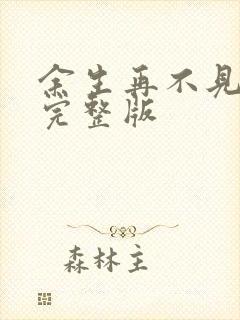 余生再不见
完整版
森林主